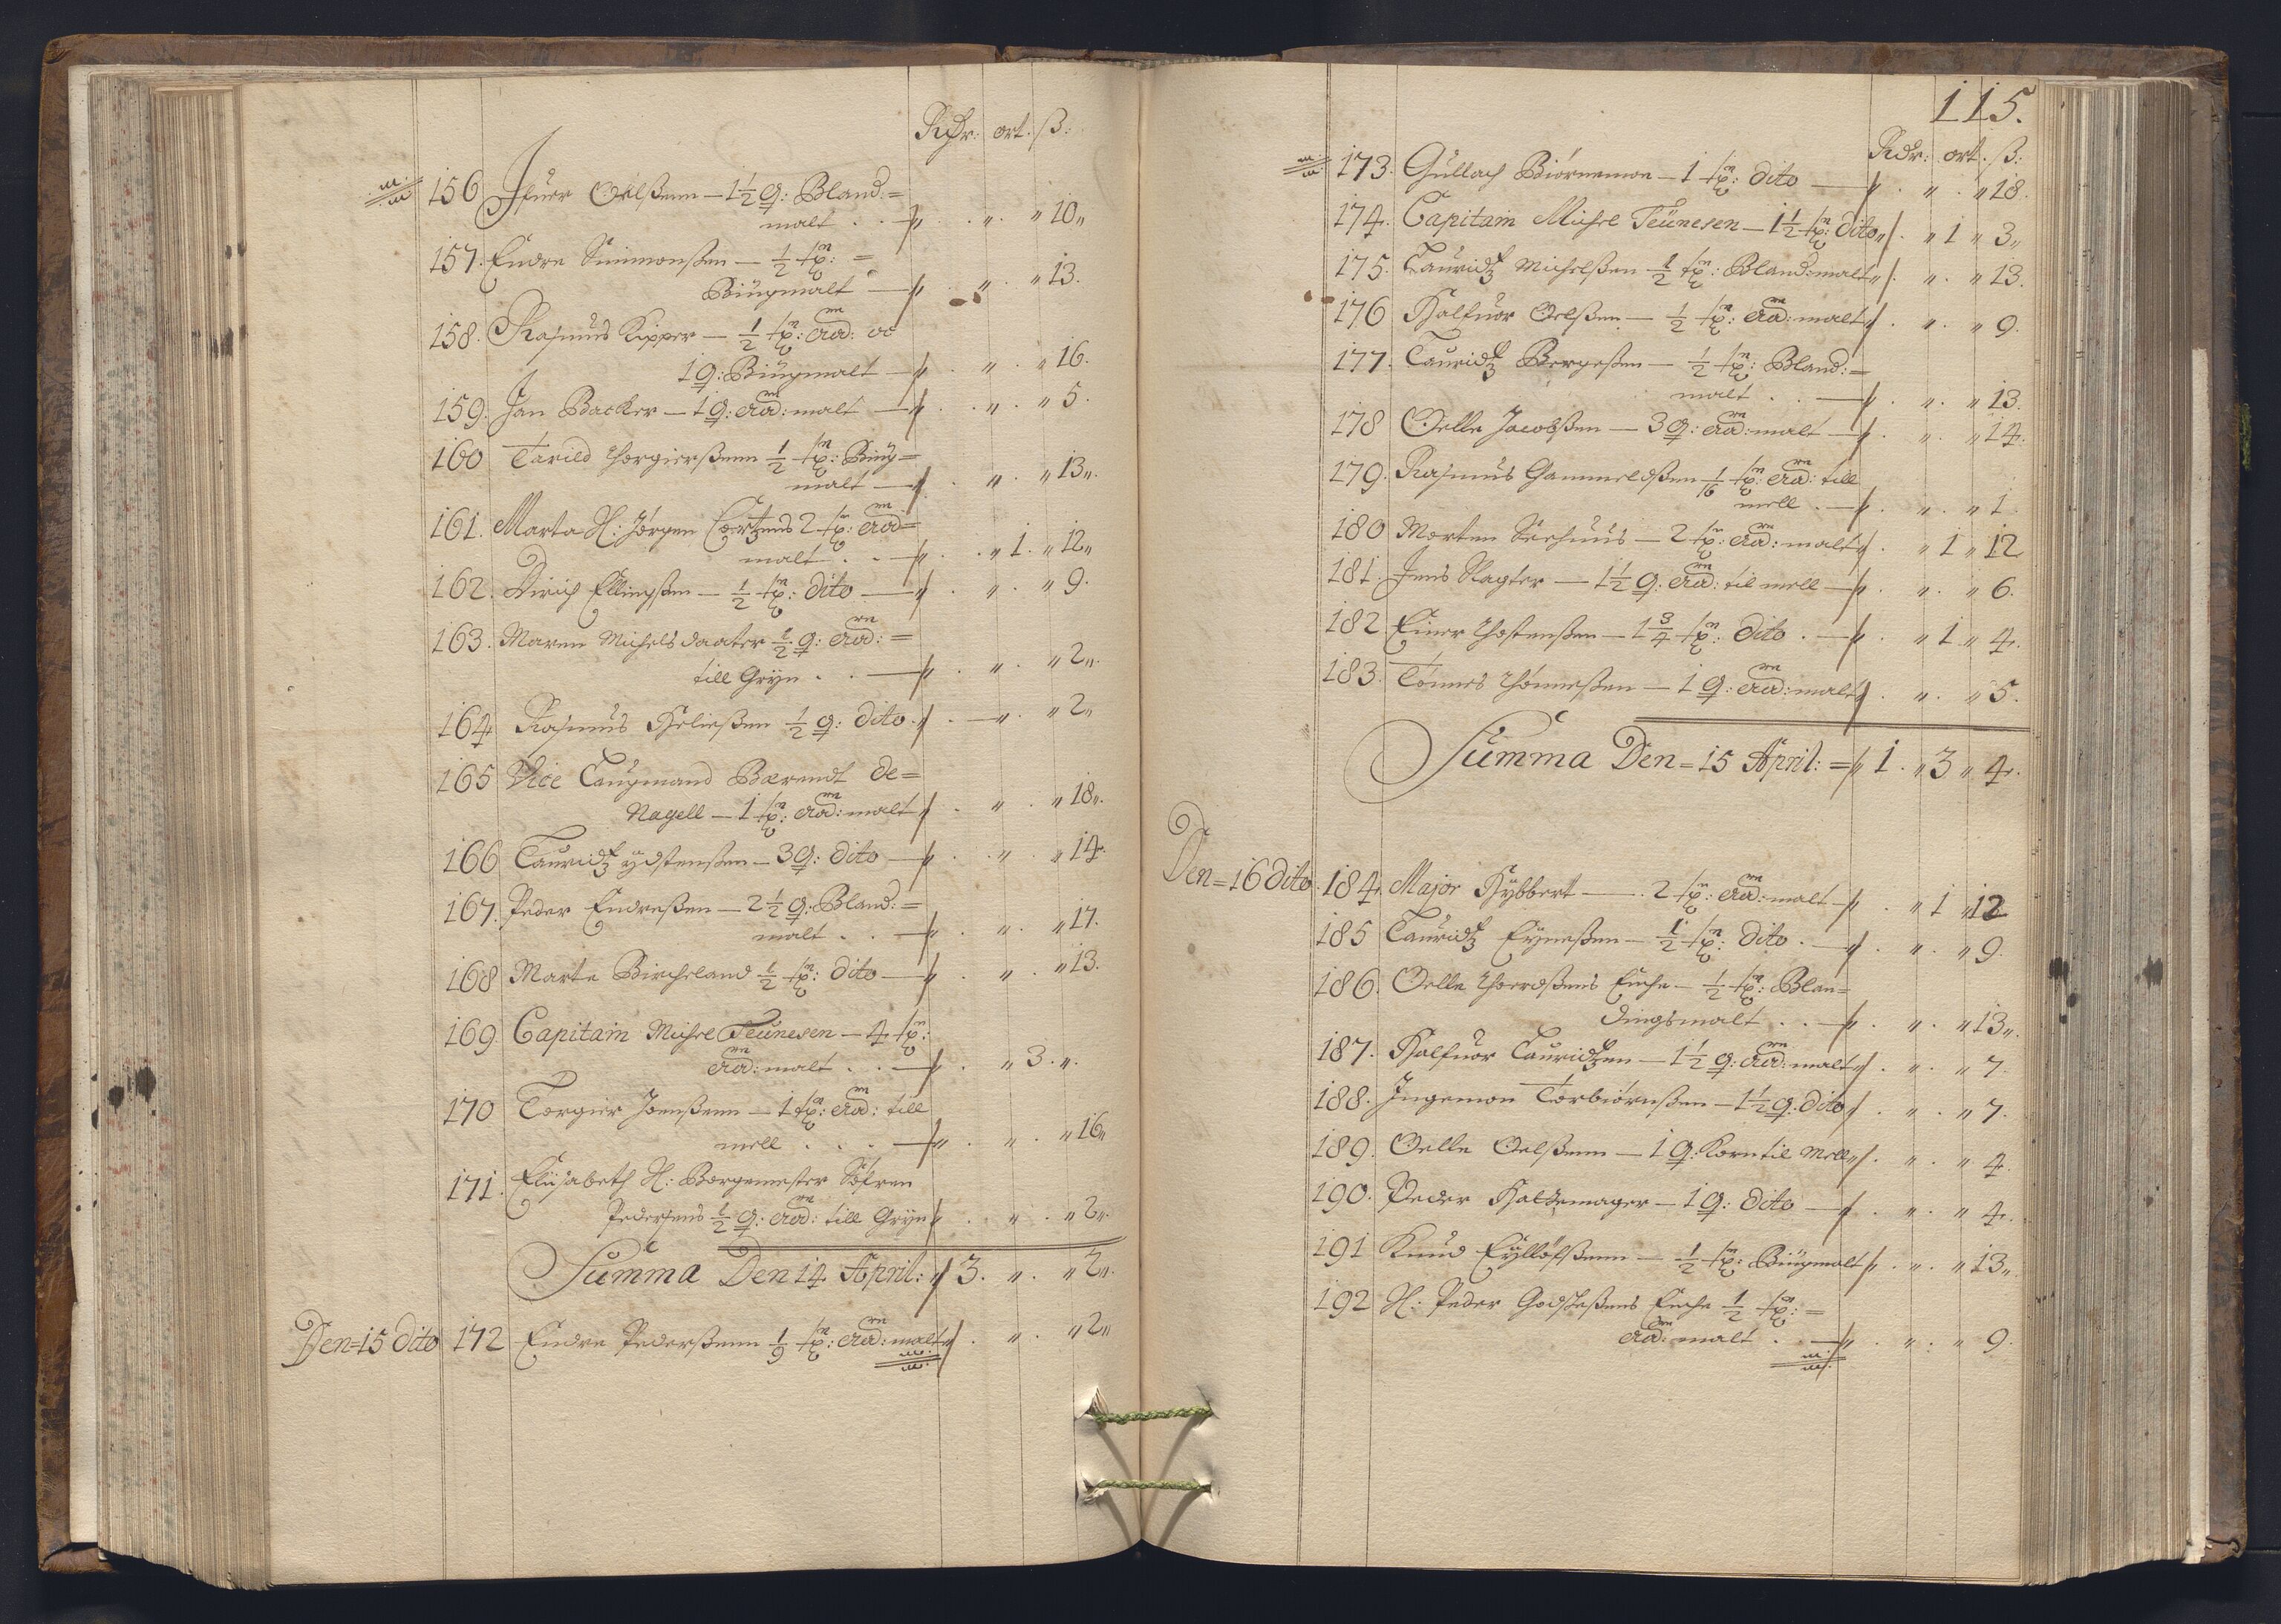 Rdr: ort. ß:
156 Ifuer Oelßenn — 1½ q: Bland=
malt . . — „ „ 10 „
157. Endre Simmonßen — ½ tn: =
Biugmalt — „ „ 13.
158. Rasmus Kipper — ½ tn: Rod: oc
1 q: Biugmalt — „ „ 16.
159. Jan Backer — 1 q: : malt — „ „ 5.
160 Tarild Thorgierßenn ½ tn: Biug=
malt — „ „ 13 „
161. Marta H: Jørgen 2 tn:
malt . . — „ 1. „ 12 „
162. Dirich Ellingßen — ½ tn: dito — „ „ 9.
163. Maren Michelsdaater ½ q: =
till Gryn . . — „ „ 2 „
164 Rasmus Heließen ½ q: dito „ — „ 2 „
165 Vice Laugmand Bærendt de=
Nagell — 1 tn: : malt „ „ 18 „
166 Lauridtz ÿdstenßen — 3 q: dito — „ „ 14.
167. Peder Endreßen — 2½ q: Bland: =
malt . . — „ „ 17.
168 Marte Bircheland ½ tn: dito — „ „ 13.
169 Capitain Michel Teünesen — 4 tn:
: malt . . — „ 3. „
170 Torgier Joenßenn — 1 tn: : till
mell . . . — „ „ 16 „
171. Elisabeth H: Borgemester Søfren
Pedersens ½ q: : till Gryn „ „ 2 „
Summa Den 14 April: „ 3. „ „ 2 „
Den = 15 dito 172 Endre Pederßenn 1/9 tn: : malt „ „ 2 „
115.
Rdr: ort. ß:
173. Gullach Biørnemon — 1 tn: dito — „ „ 18.
174. Capitain Michel Teünesen — 1½ tn: dito „ „ 1 „ 3 „
175. Lauridtz Michelßen ½ tn: Bland: malt „ „ 13.
176 Halfuor Oelßen — ½ tn: : malt „ „ 9.
177. Lauridtz Bergeßen — ½ tn: Bland: =
malt . . — „ „ 13.
178 Oelle Jacobßen — 3 q: : malt — „ „ 14.
179. Rasmus Gammeldßen 1/16 tn: : till
mell . — „ „ 1.
180 Morten Seehuus — 2 tn: : malt „ „ 1 „ 12
181. Jens Slagter — 1½ q: : til mell — „ „ 6.
182. Einer Thostenßen — 1¾ tn: dito . — „ 1 „ 4.
183. Tønnes Thønneßen — 1 q: : malt „ „ 5.
Summa Den = 15 April: = „ 1. „ 3 „ 4.
Den = 16 dito 184. Major Hÿbbert — 2 tn: : malt — „ 1 „ 12
185 Lauridtz Eyneßen — ½ tn: dito . — „ „ 9.
186. Oelle Thoerdßens Enche — ½ tn: Blan=
dingsmalt . . — „ „ 13 „
187. Halfuor Lauridtzen — 1½ q: : malt „ „ 7.
188. Ingemon Torbiørnßen — 1½ q: dito „ „ 7.
189. Oelle Oelßenn — 1 q: Korn til Mell „ „ 4.
190. Peder Hattemager — 1 q: dito — „ „ 4.
191 Knud Eÿllofßenn — ½ tn: Biugmalt „ „ 13 „
192 H: Peder Godtzeßens Enche ½ tn: =
: malt . — „ „ 9.